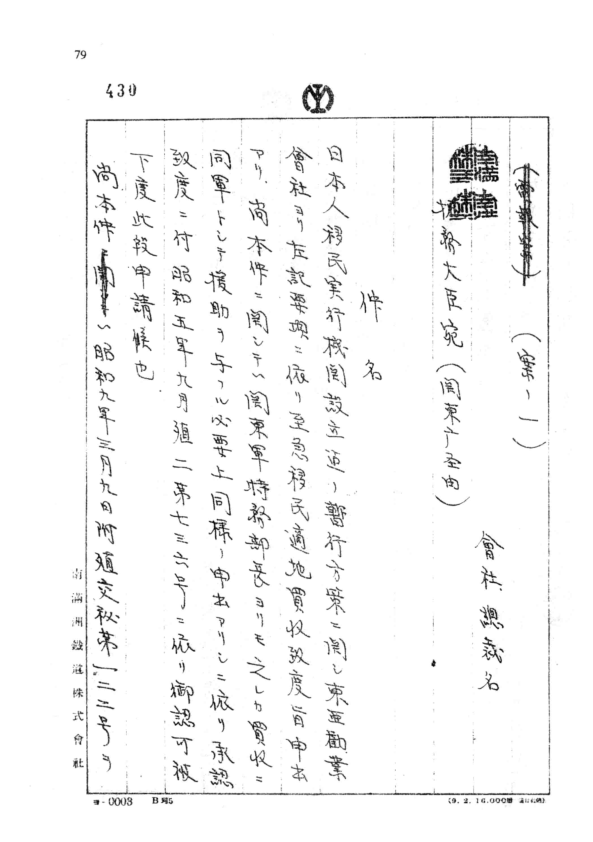 79
430
(電報案)
(案ノ一)
會社總裁名
拓務大臣宛(関東庁経由)
件名
日本人移民実行機関設立迄ノ暫行方策ニ関シ東亜勧業
會社ヨリ左記要項ニ依リ至急移民適地買収致度旨申出
アリ、尚本件ニ関シテハ関東軍特務部長ヨリモ之レカ買収ニ
同軍トシテ援助ヲ与フル必要上同様ノ申出アリシニ依リ承認
致度ニ付昭和五年九月殖二第七三六号ニ依リ御認可被
下度此段申請候也
尚本件ニ関シテハ昭和九年三月九日附殖交秘第一二二号ヲ
南滿洲鐵道株式會社
ヨ-0003 B列5
(9. 2. 16,000冊